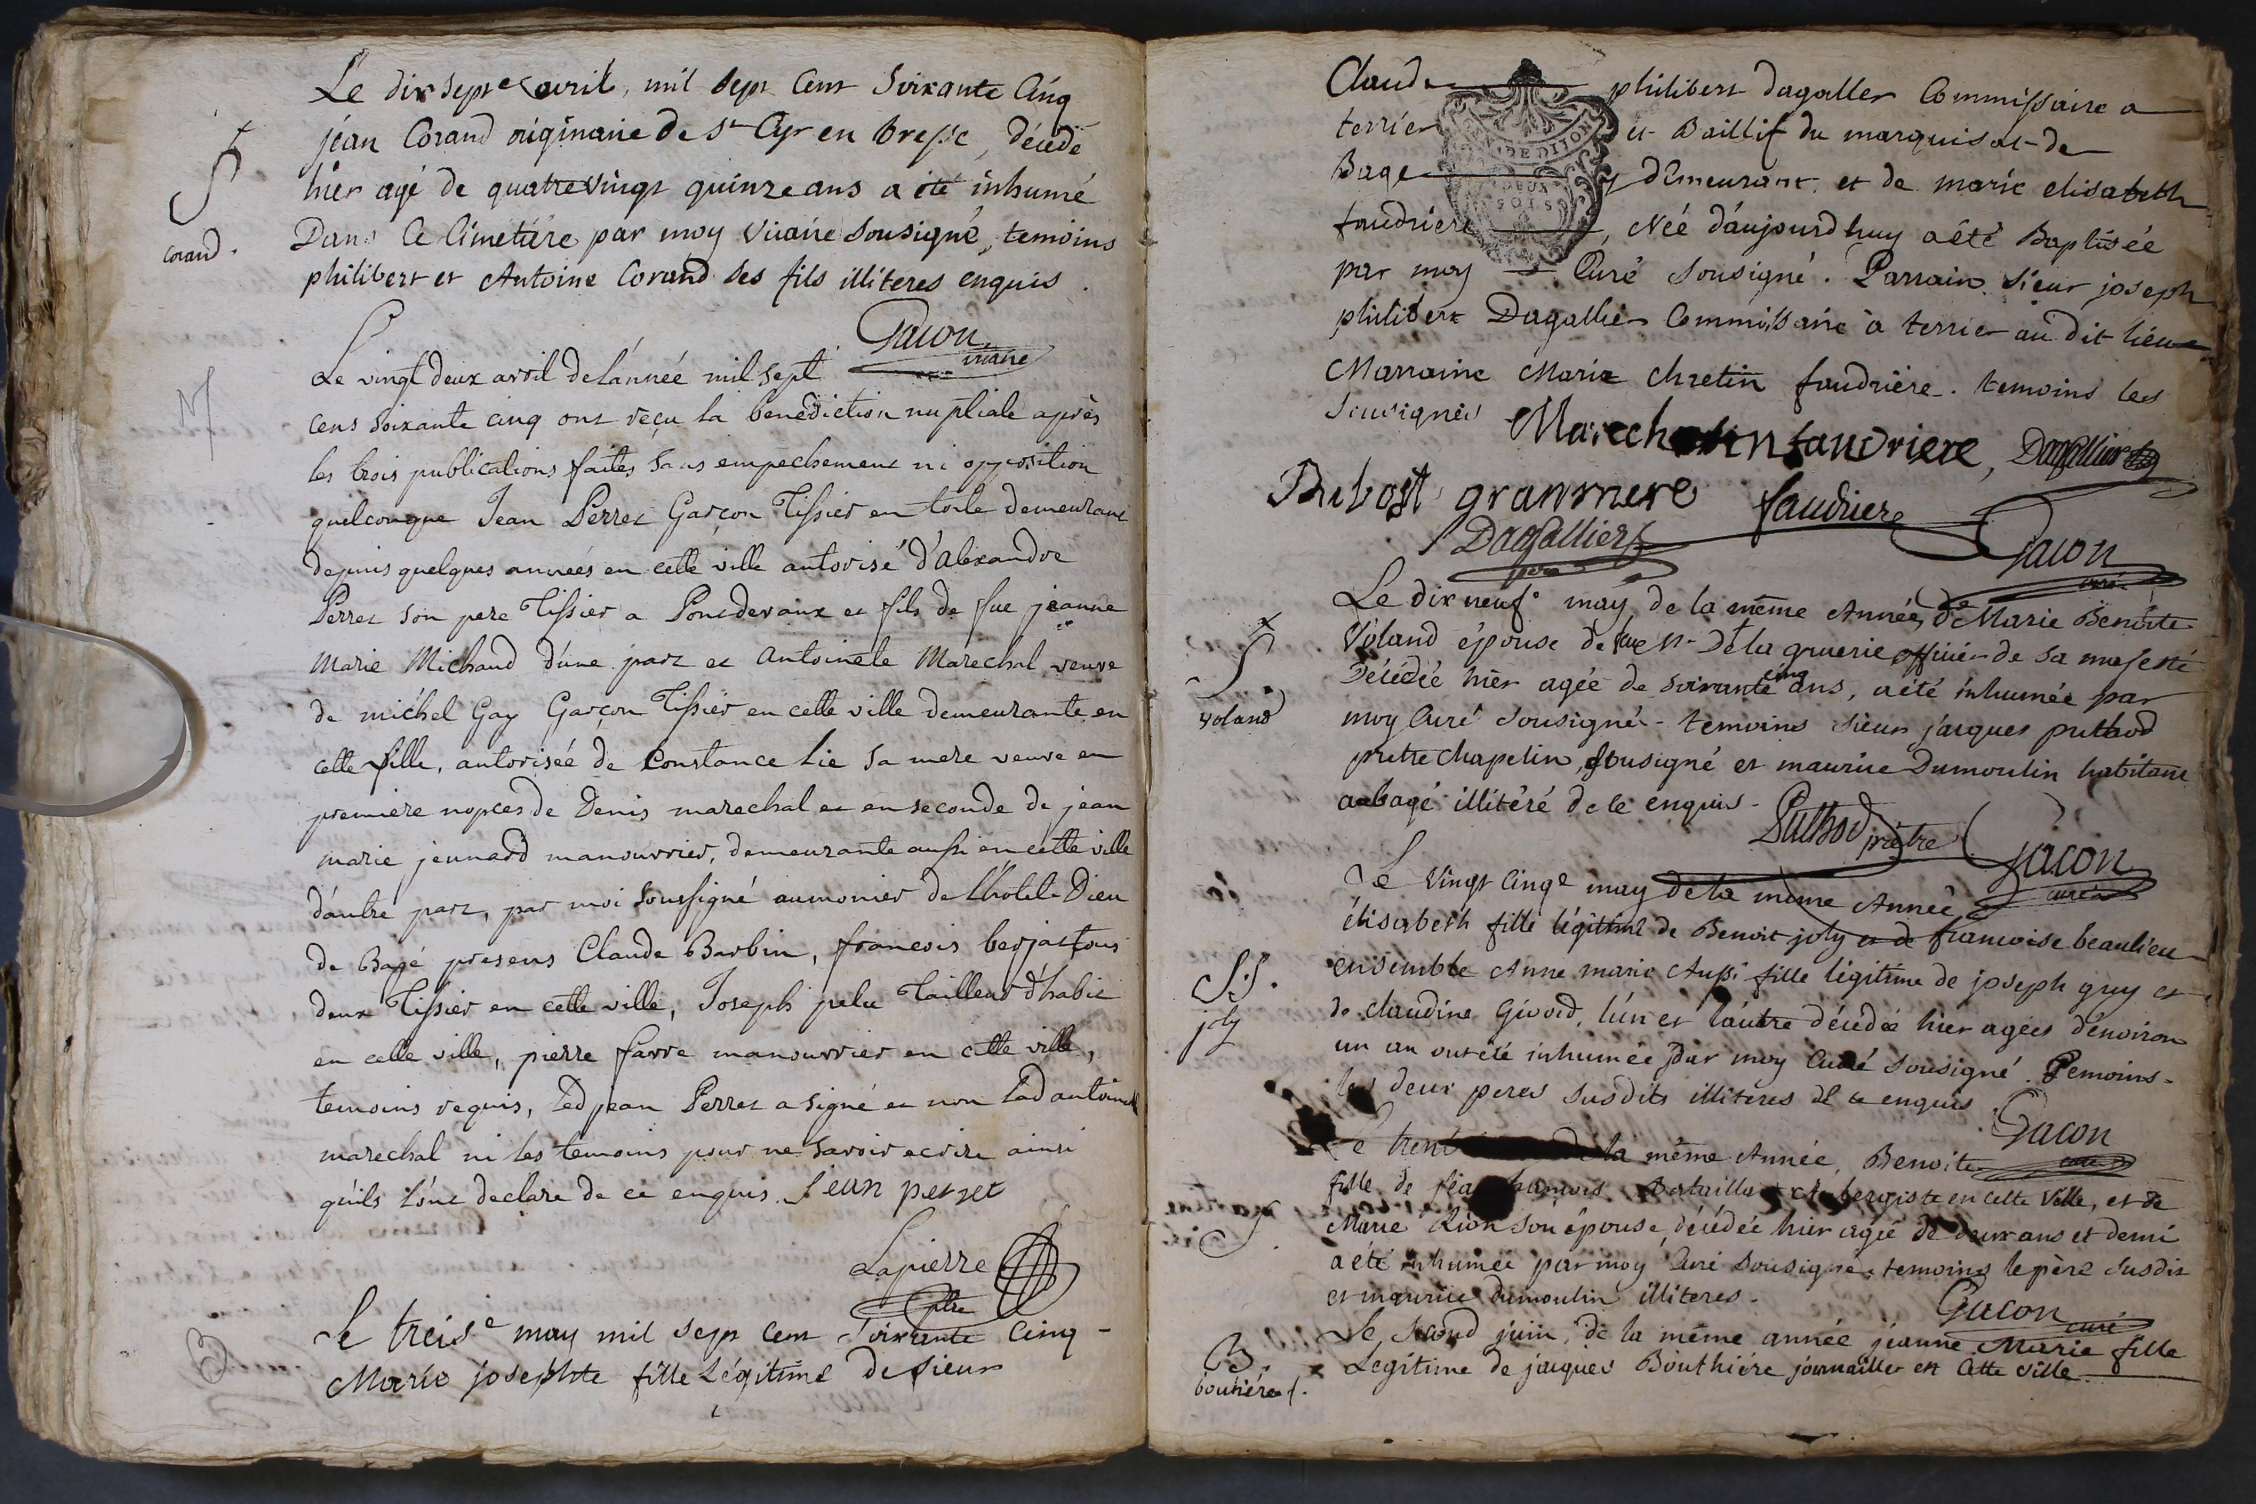 Le dix septe avril, mil sept Cent Soixante Cinq
jean Corand originaire de St Cyr en bresse, décédé
hier agé de quatrevingt quinze ans a été inhumé
Dans le Cimetiére par moy Vicaire Sousigné, temoins
philibert et Antoine Corand ses fils illiteres enquis.
Corand.
Gacon
vicaire
Le vingt deux avril de l'année mil sept
cens soixante cinq ont reçu la benediction nuptiale après
les trois publications faites sans empechement ni opposition
quelconque Jean Perret Garçon Tissier en toile demeurant
depuis quelques années en cette ville autorisé d'alexandre
Perret son pere Tissier a Pontdevaux et fils de fue jeanne
Marie Michaud d'une part et antoinete Marechal veuve
de michel Gay Garçon Tissier en cette ville demeurante en
cette ville, autorisée de Constance Lie sa mere veuve en
premiere nopces de Denis marechal et en seconde de jean
marie jeunard manouvrier, demeurante aussi en cette ville
d'autre part, par moi soussigné aumonier de l'hotel-Dieu
de Bagé presens Claude Barbin, francois berjat tous
deux Tissier en cette ville, Joseph pelu Tailleur d'habit
en cette ville, pierre favre manouvrier en cette ville,
temoins requis, led jean Perret a signé et non lad antoinete
marechal ni les temoins pour ne savoir ecrire ainsi
qu'ils l'ont declare de ce enquis. Jean perret
Lapierre
ptre
Le treise may mil sept cent Soixante Cinq -
Marie josephte fille Légitime de sieur
Claude philibert dagallier Commissaire a
terrier et Baillif du marquisat de
Bage y demeurant. et de marie elisabeth
faudriere, Née d'aujourdhuy a été Baptisée
par moy Curé Sousigné. Parrain sieur joseph
philibert Dagallier Commissaire a terrier au dit lieu
Marraine Marie Chretin faudriére. temoins les
Sousignés
Marie chretin faudriere, Dagallier
Dubost granmere faudriere
Dagallier
pere
Gacon
curé
Le dix neufe may de la même Année, De Marie Benoite
Voland épouse de feu Mr De la gruerie officier de sa majesté
Décédée hier agée de soixante cinq ans, a été inhumée par
moy Curé Sousigné - temoins sieur jacques puthod
pretre chapelin, Sousigné et maurice Dumoulin habitant
a bagé illitéré de ce enquis.
voland
Puthod prêtre
Gacon
curé
Le Vingt Cinqe may de la même Année
élisabeth fille légitime de Benoit joly et de francoise beaulieu
ensemble Anne marie Aussi fille légitime de joseph guy et
de claudine Givord, l'un et l'autre décédée hier agées d'environ
un an ont été inhumée par moy Curé Sousigné. Temoins
les deux peres susdits illiteres de ce enquis.
joly
Gacon
curé
Le trent de la même Année, Benoite
fille de françois Bataillard aubergiste en cette Ville, et de
Marie Lion son épouse, décédée hier agée de deux ans et demi
a été inhumée par moy Curé Sousigné. temoins le père susdit
et maurice dumoulin illiteres.
Gacon
curé
Le Second juin, de la même année jeanne Marie fille
Légitime de jacques Bouthiére journailler en Cette ville.
B.
boutiére